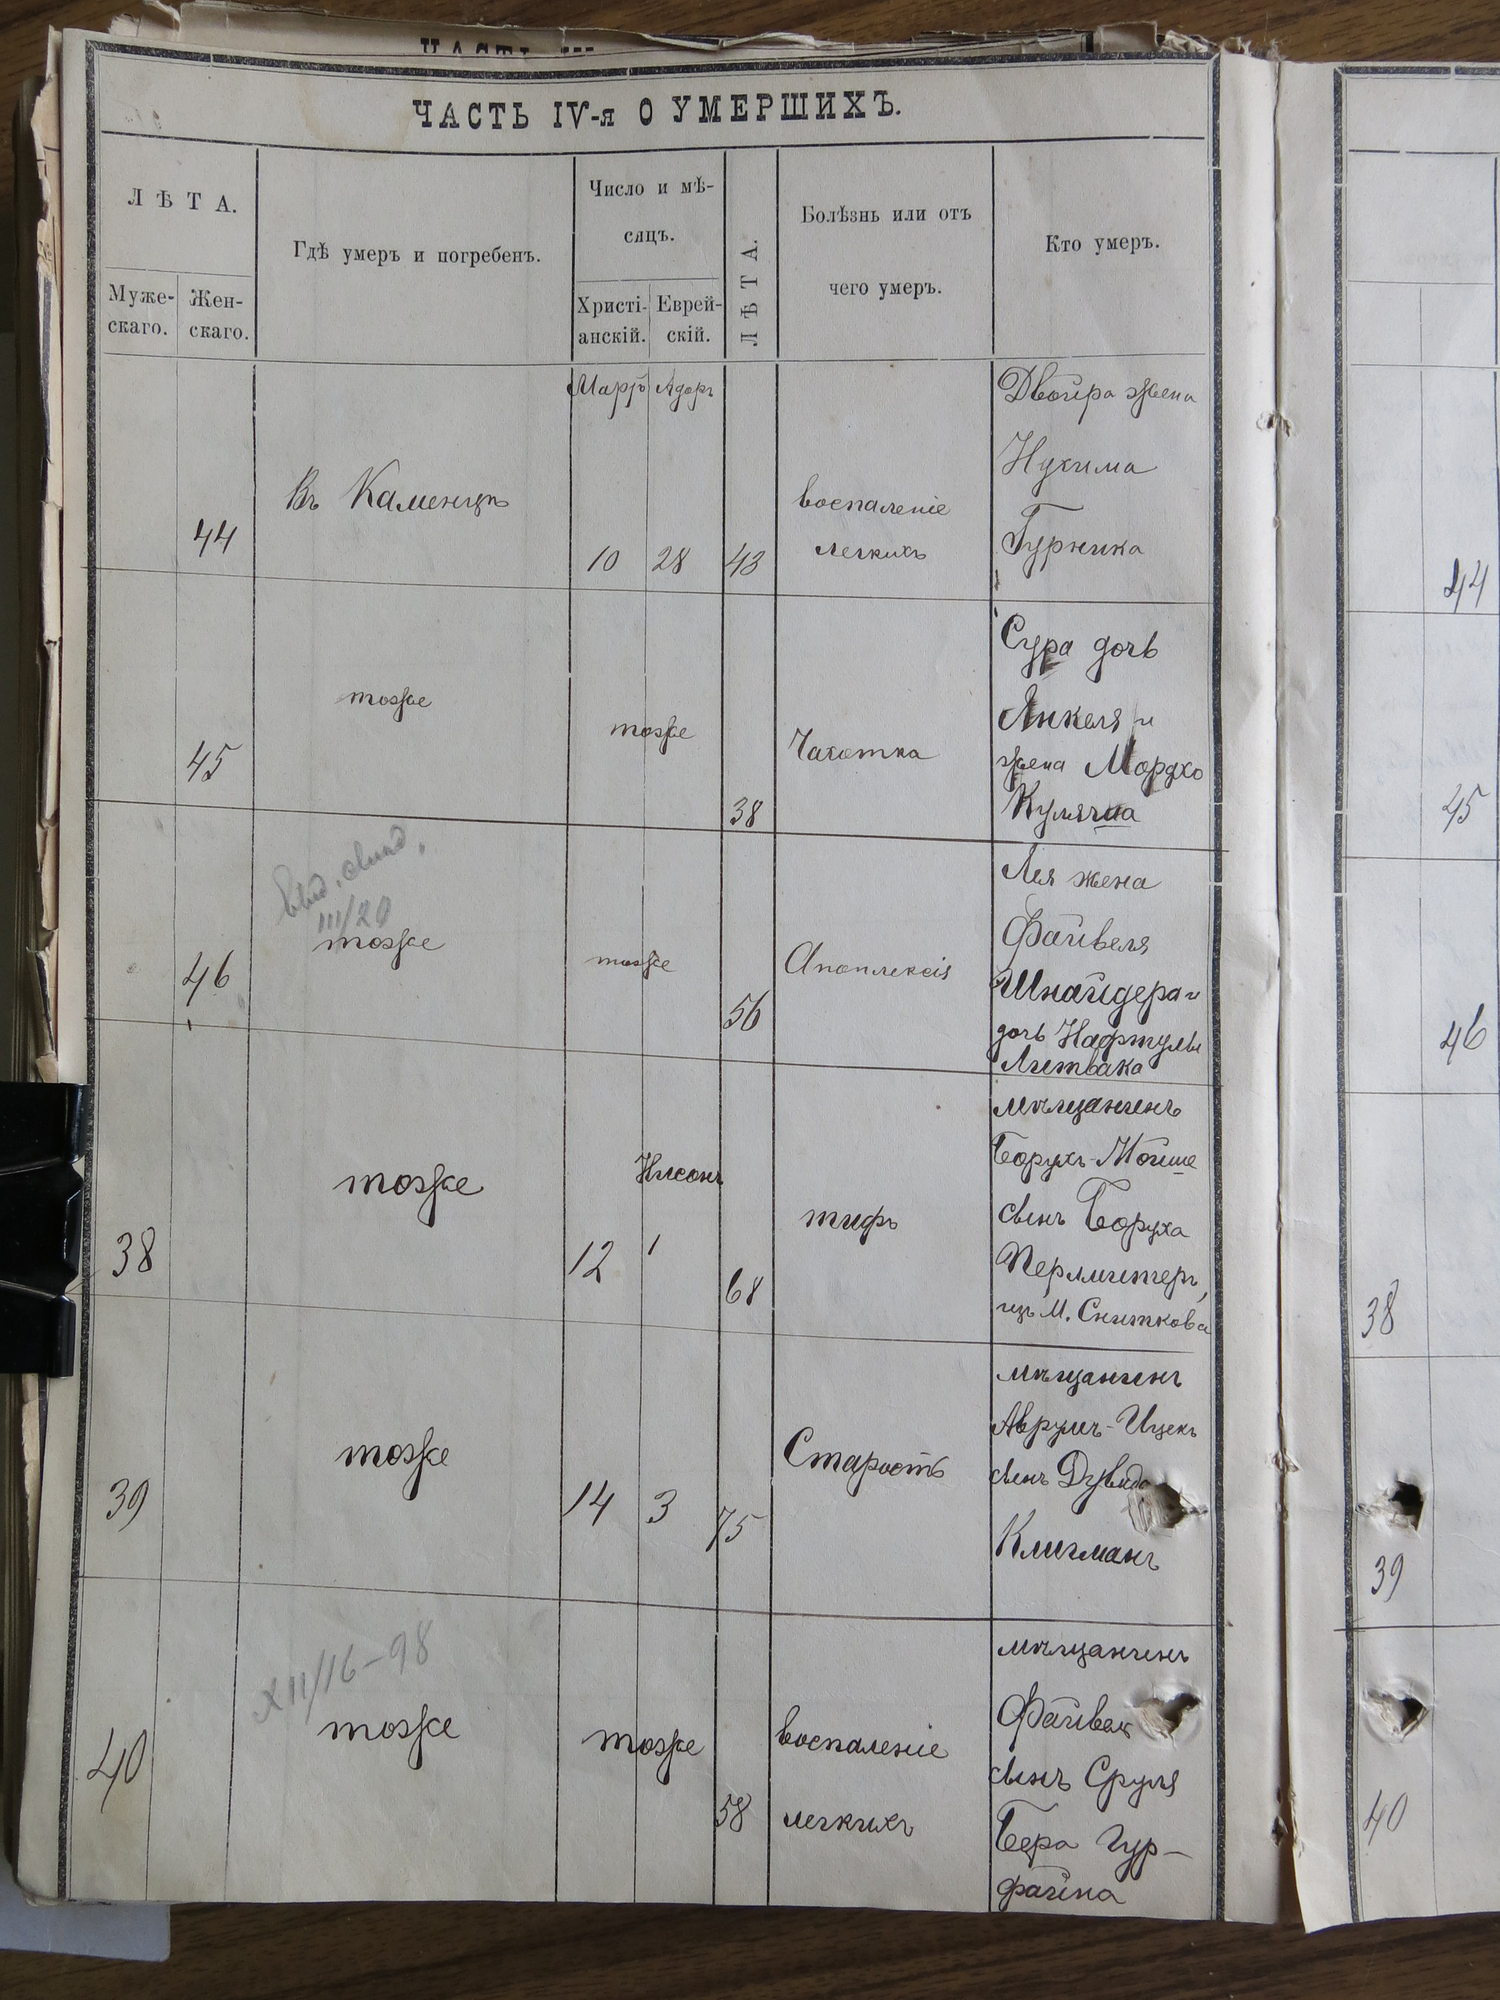 ЧАСТЬ IV-я О УМЕРШИХЪ.
ЛѢТА.
Муже-
скаго.
Жен-
скаго.
Гдѣ умеръ и погребенъ.
Число и мѣ-
сяцъ.
Христі-
анскій.
Еврей-
скій.
ЛѢТА.
Болѣзнь или отъ
чего умеръ.
Кто умеръ.
Мартъ Адаръ
44
Въ Каменцѣ
10 28 43
воспаленіе
легкихъ
Двойра жена
Нухима
Гурника
44
45
тоже
тоже
38
Чахотка
Сура дочь
Янкеля и
жена Мордко
45
46
III/20
тоже
тоже
56
Апоплексія
Лея жена
Файвеля
Шнайдера и
дочь Нафтулы
Литвака
46
38
тоже
Нисонъ
12 1
68
тифъ
мѣщанинъ
Борухъ-Мойше
сынъ Боруха
Перлмитеръ,
изъ М. Сниткова
38
39
тоже
14 3
75
Старость
мѣщанинъ
Аврумъ-Ицекъ
сынъ Дувида
Клигманъ
39
XII/16-98
40
тоже
тоже
58
воспаленіе
легкихъ
мѣщанинъ
Файвель
сынъ Сруля
Бера Гур-
файна
40